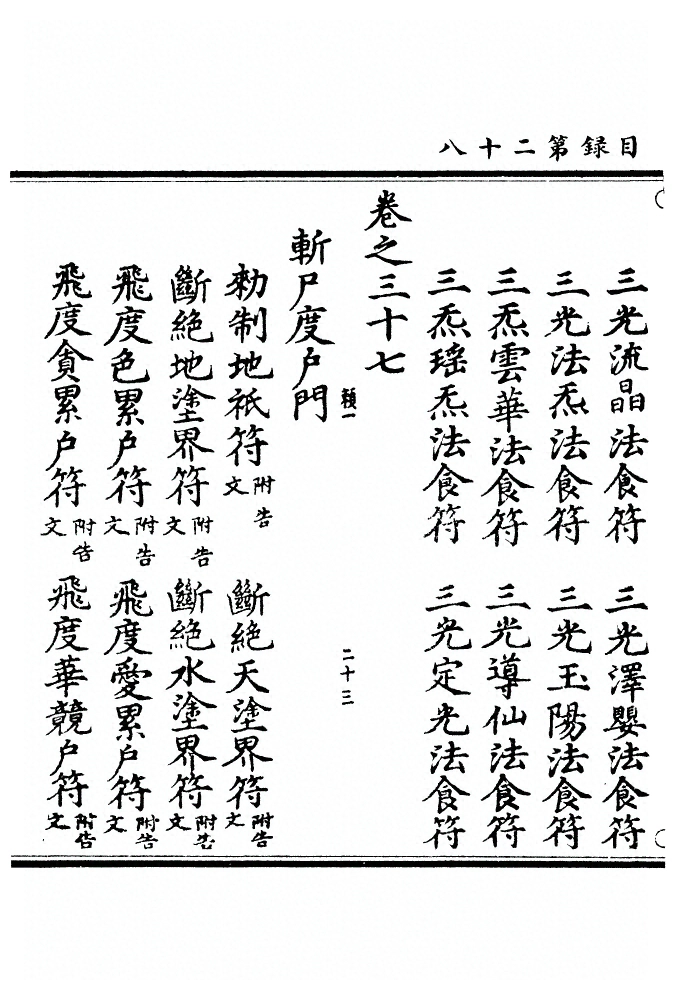 目録第二十八
三光流晶法食符　三光澤嬰法食符
三光法炁法食符　三光玉陽法食符
三炁雲華法食符　三光導仙法食符
三炁瑶炁法食符　三光定光法食符
卷之三十七
二十三
斬尸度户門 類一
勑制地祇符 附告文　斷絶天塗界符 附告文
斷絶地塗界符 附告文　斷絶水塗界符 附告文
飛度色累户符 附告文　飛度愛累户符 附告文
飛度貪累户符 附告文　飛度華競户符 附告文